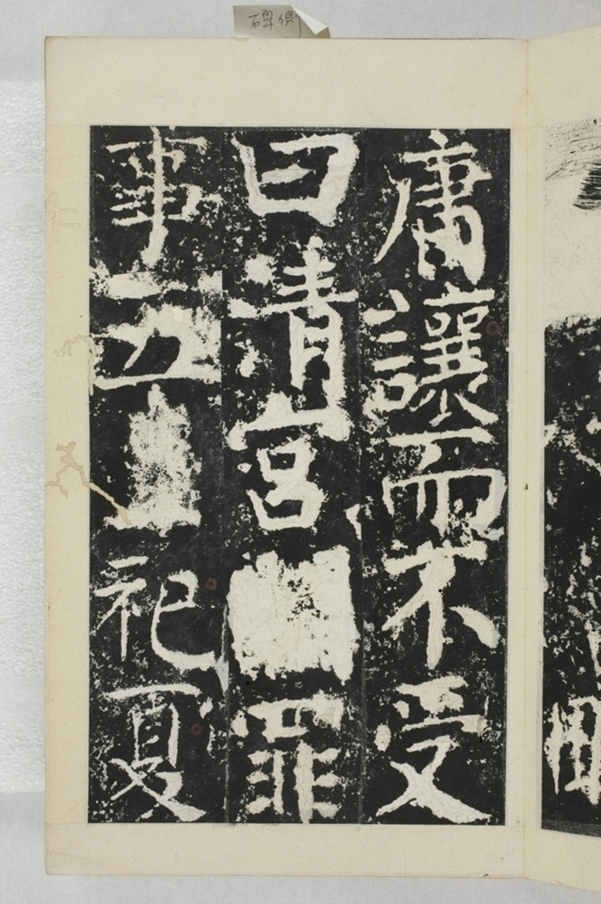 碑側
庸讓而不受
曰青宮罪
事五祀夏